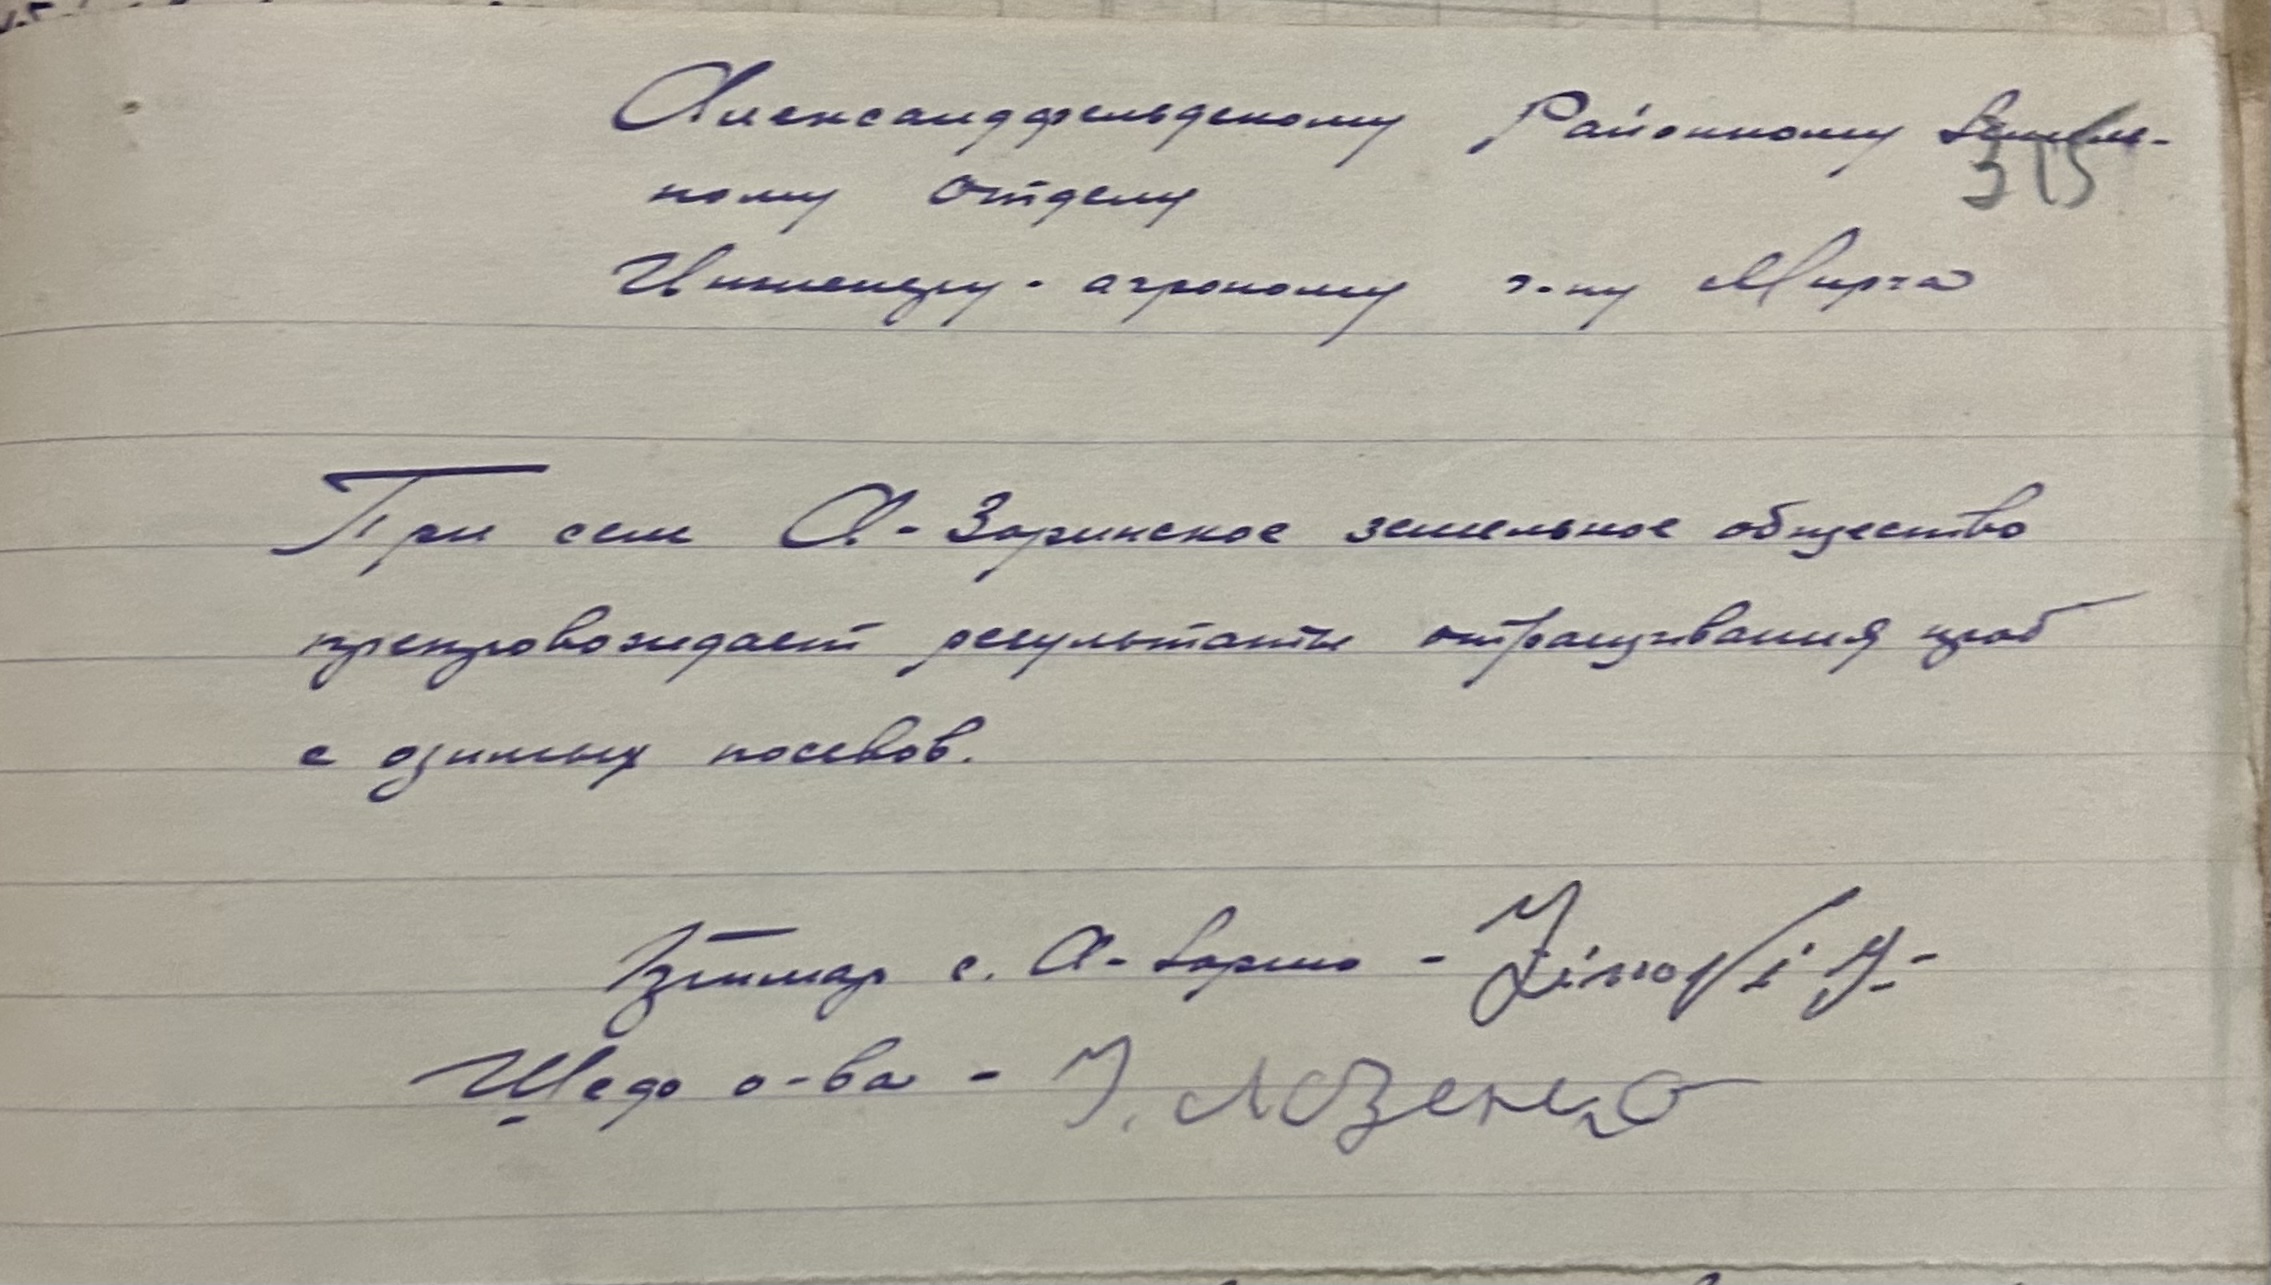 Александрфельдскому Районному Земель-
ному Отделу
315
Инженеру-агроному г-ну Мирча
При сем А-Заринское земельное общество
препровождает результаты отращивания проб
с озимых посевов.
с. А-Зарио -
о-ва - У. Лозенко